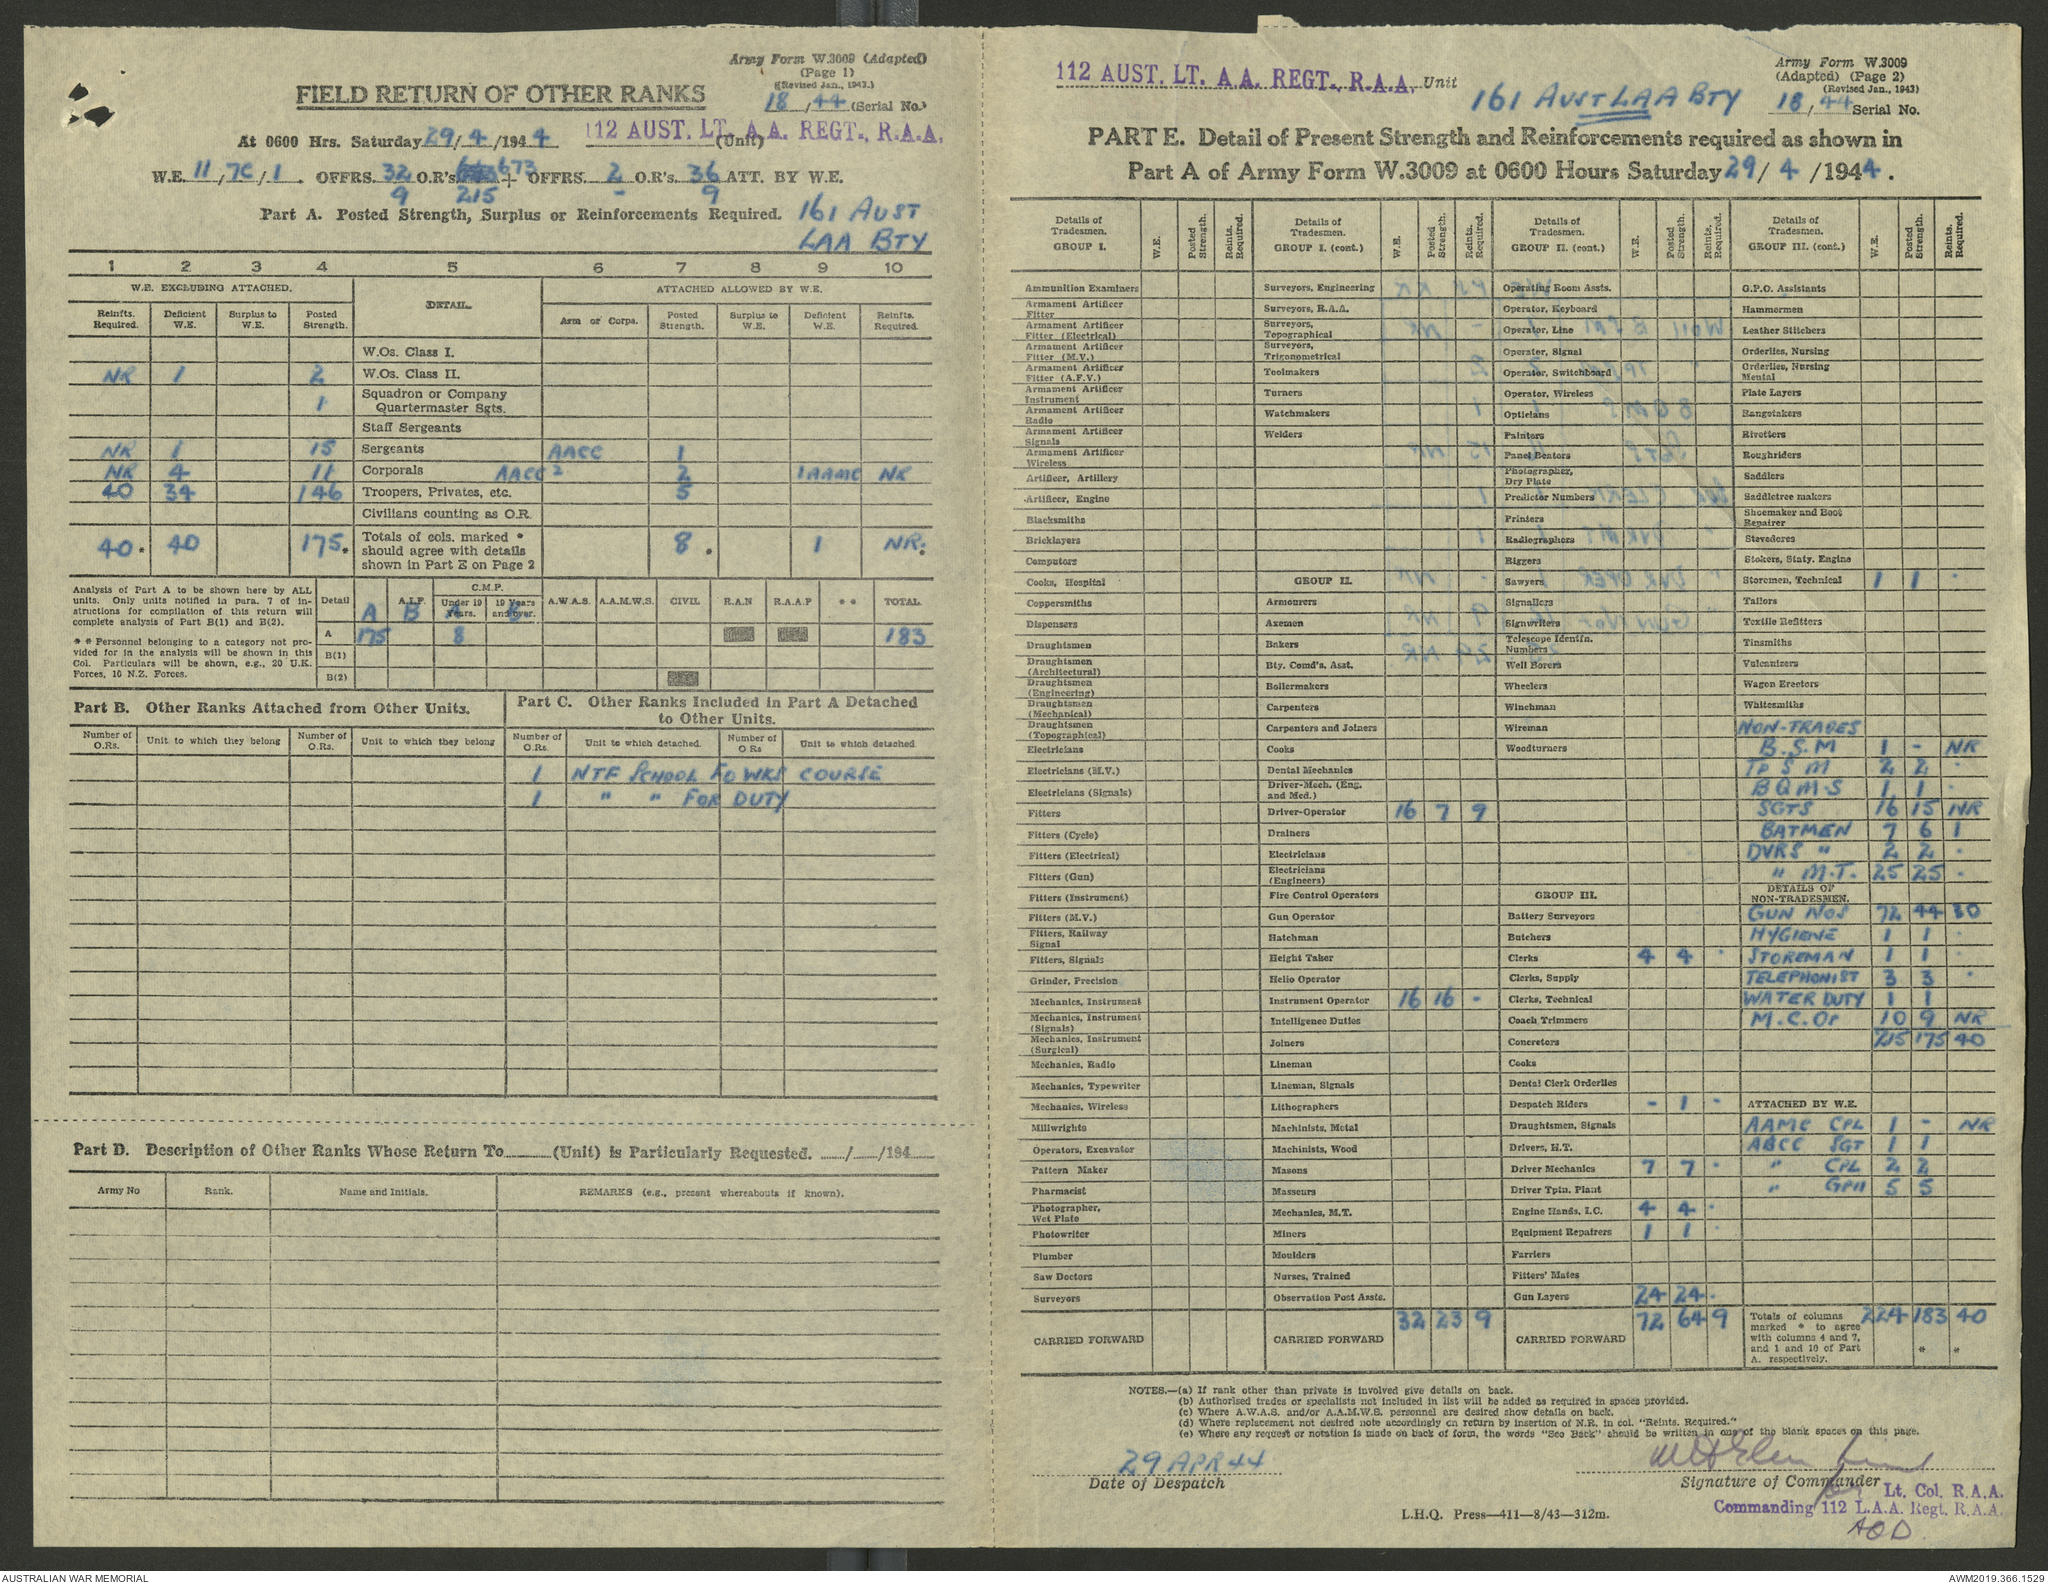 Army Form W.3009 (Adapted)
(Page 1)
(Revised Jan., 1943.)
FIELD RETURN OF OTHER RANKS
18/44 (Serial No.)
At 0600 Hrs. Saturday 29/4/1944 112 AUST. LT. A.A. REGT., R.A.A. (Unit)
W.E. 11/7C/1. OFFRS. 32 O.R's. 673 + OFFRS. 2 O.R's. 36 ATT. BY W.E.
9 215 - 9
Part A. Posted Strength, Surplus or Reinforcements Required. 161 AUST
LAA BTY
1 2 3 4 5 6 7 8 9 10
W.E. EXCLUDING ATTACHED. DETAIL. ATTACHED ALLOWED BY W.E.
Reinfts. Required. Deficient W.E. Surplus to W.E. Posted Strength. Arm or Corps. Posted Strength. Surplus to W.E. Deficient W.E. Reinfts. Required.
W.Os. Class I.
NR 1 2 W.Os. Class II.
1 Squadron or Company Quartermaster Sgts.
Staff Sergeants
NR 1 15 Sergeants AACC 1
NR 4 11 Corporals AACC 2 2 1 AAMC NR
40 34 146 Troopers, Privates, etc. 5
Civilians counting as O.R.
40* 40 175* Totals of cols. marked * should agree with details shown in Part E on Page 2 8* 1 NR*
Analysis of Part A to be shown here by ALL units. Only units notified in para. 7 of instructions for compilation of this return will complete analysis of Part B(1) and B(2).
* * Personnel belonging to a category not provided for in the analysis will be shown in this Col. Particulars will be shown, e.g., 20 U.K. Forces, 10 N.Z. Forces.
Detail A A.I.F. B C.M.P. Under 19 Years. 19 Years and over. A.W.A.S. A.A.M.W.S. CIVIL R.A.N R.A.A.F * * TOTAL
A 175 8 183
B(1)
B(2)
Part B. Other Ranks Attached from Other Units.
Part C. Other Ranks Included in Part A Detached to Other Units.
Number of O.Rs. Unit to which they belong Number of O.Rs. Unit to which they belong Number of O.Rs. Unit to which detached. Number of O Rs Unit to which detached
1 NTF SCHOOL FD WKS COURSE
1 " " FOR DUTY
Part D. Description of Other Ranks Whose Return To (Unit) is Particularly Requested. / /194
Army No Rank. Name and Initials. REMARKS (e.g., present whereabouts if known).
112 AUST. LT. A.A. REGT., R.A.A. Unit
161 AUST LAA BTY
Army Form W.3009
(Adapted) (Page 2)
(Revised Jan., 1943)
18/44 Serial No.
PART E. Detail of Present Strength and Reinforcements required as shown in
Part A of Army Form W.3009 at 0600 Hours Saturday 29/4/1944.
Details of Tradesmen. GROUP I. W.E. Posted Strength. Reints. Required.
Ammunition Examiners
Armament Artificer Fitter
Armament Artificer Fitter (Electrical)
Armament Artificer Fitter (M.V.)
Armament Artificer Fitter (A.F.V.)
Armament Artificer Instrument
Armament Artificer Radio
Armament Artificer Signals
Armament Artificer Wireless
Artificer, Artillery
Artificer, Engine
Blacksmiths
Bricklayers
Computors
Cooks, Hospital
Coppersmiths
Dispensers
Draughtsmen
Draughtsmen (Architectural)
Draughtsmen (Engineering)
Draughtsmen (Mechanical)
Draughtsmen (Topographical)
Electricians
Electricians (M.V.)
Electricians (Signals)
Fitters
Fitters (Cycle)
Fitters (Electrical)
Fitters (Gun)
Fitters (Instrument)
Fitters (M.V.)
Fitters, Railway Signal
Fitters, Signals
Grinder, Precision
Mechanics, Instrument
Mechanics, Instrument (Signals)
Mechanics, Instrument (Surgical)
Mechanics, Radio
Mechanics, Typewriter
Mechanics, Wireless
Millwrights
Operators, Excavator
Pattern Maker
Pharmacist
Photographer, Wet Plate
Photowriter
Plumber
Saw Doctors
Surveyors
CARRIED FORWARD
Details of Tradesmen. GROUP I. (cont.) W.E. Posted Strength. Reints. Required.
Surveyors, Engineering
Surveyors, R.A.A.
Surveyors, Topographical
Surveyors, Trigonometrical
Toolmakers
Turners
Watchmakers
Welders
GROUP II.
Armourers
Axemen
Bakers
Bty. Comd's. Asst.
Boilermakers
Carpenters
Carpenters and Joiners
Cooks
Dental Mechanics
Driver-Mech. (Eng. and Med.)
Driver-Operator 16 7 9
Drainers
Electricians
Electricians (Engineers)
Fire Control Operators
Gun Operator
Hatchman
Height Taker
Helio Operator
Instrument Operator 16 16 -
Intelligence Duties
Joiners
Lineman
Lineman, Signals
Lithographers
Machinists, Metal
Machinists, Wood
Masons
Masseurs
Mechanics, M.T.
Miners
Moulders
Nurses, Trained
Observation Post Assts.
CARRIED FORWARD 32 23 9
Details of Tradesmen. GROUP II. (cont.) W.E. Posted Strength. Reints. Required.
Operating Room Assts.
Operator, Keyboard
Operator, Line
Operator, Signal
Operator, Switchboard
Operator, Wireless
Opticians
Painters
Panel Beaters
Photographer, Dry Plate
Predictor Numbers
Printers
Radiographers
Riggers
Sawyers
Signallers
Signwriters
Telescope Identfn. Numbers
Well Borers
Wheelers
Winchman
Wireman
Woodturners
GROUP III.
Battery Surveyors
Butchers
Clerks 4 4 -
Clerks, Supply
Clerks, Technical
Coach Trimmers
Concretors
Cooks
Dental Clerk Orderlies
Despatch Riders - 1 -
Draughtsmen, Signals
Drivers, H.T.
Driver Mechanics 7 7 -
Driver Tptn. Plant
Engine Hands, I.C. 4 4 -
Equipment Repairers 1 1 -
Farriers
Fitters' Mates
Gun Layers 24 24 -
CARRIED FORWARD 72 64 9
Details of Tradesmen. GROUP III. (cont.) W.E. Posted Strength. Reints. Required.
G.P.O. Assistants
Hammermen
Leather Stitchers
Orderlies, Nursing
Orderlies, Nursing Mental
Plate Layers
Rangetakers
Rivetters
Roughriders
Saddlers
Saddletree makers
Shoemaker and Boot Repairer
Stevedores
Stokers, Staty. Engine
Storemen, Technical 1 1 -
Tailors
Textile Refitters
Tinsmiths
Vulcanizers
Wagon Erectors
Whitesmiths
NON-TRADES
B.S.M 1 - NR
TP S M 2 2 -
B Q M S 1 1 -
SGTS 16 15 NR
BATMEN 7 6 1
DVRS " 2 2 -
" M.T. 25 25 -
DETAILS OF NON-TRADESMEN.
GUN NOS 72 44 30
HYGIENE 1 1 -
STOREMAN 1 1 -
TELEPHONIST 3 3 -
WATER DUTY 1 1
M.C.Or 10 9 NR
215 175 40
ATTACHED BY W.E.
AAMC CPL 1 - NR
ABCC SGT 1 1
" CPL 2 2
" GPII 5 5
Totals of columns marked * to agree with columns 4 and 7, and 1 and 10 of Part A. respectively. 224 183 40
* *
NOTES.—(a) If rank other than private is involved give details on back.
(b) Authorised trades or specialists not included in list will be added as required in spaces provided.
(c) Where A.W.A.S. and/or A.A.M.W.S. personnel are desired show details on back.
(d) Where replacement not desired note accordingly on return by insertion of N.R. in col. "Reints. Required."
(e) Where any request or notation is made on back of form, the words "See Back" should be written in one of the blank spaces on this page.
29 APR 44
Date of Despatch
Signature of Commander
Lt. Col. R.A.A.
Commanding 112 L.A.A. Regt. R.A.A.
L.H.Q. Press—411—8/43—312m.
AUSTRALIAN WAR MEMORIAL
AWM2019.366.1529